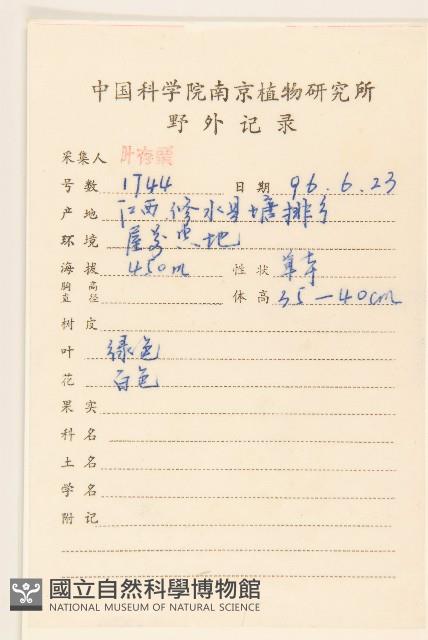 中国科学院南京植物研究所
野外记录
采集人
号数 1744 日期 96.6.23
产地 江西修水县塘排乡
环境 地
海拔 450m 性状 草本
胸高直径 体高 35—40cm
树皮
叶 绿色
花 白色
果实
科名
土名
学名
附记
國立自然科學博物館
NATIONAL MUSEUM OF NATURAL SCIENCE